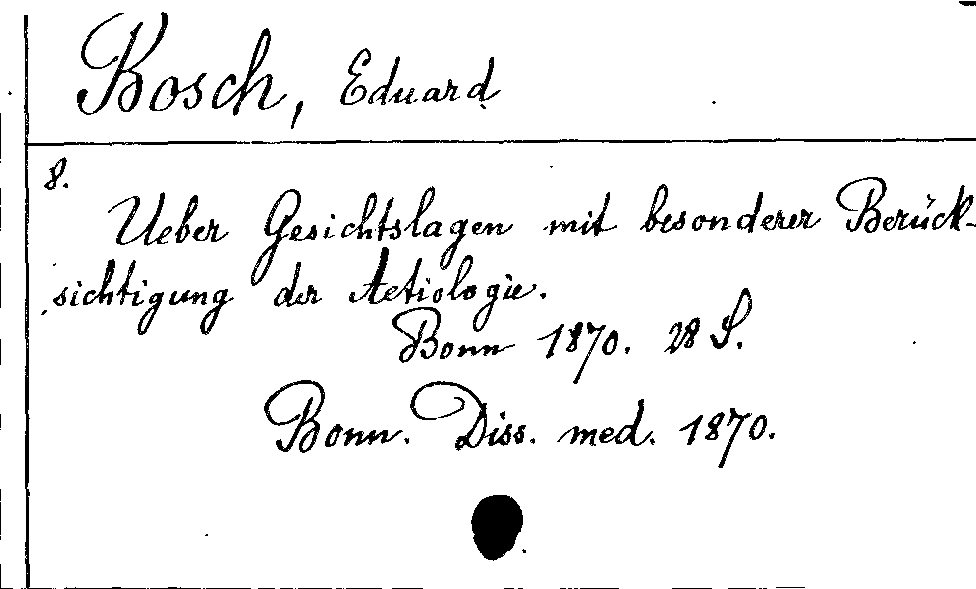 Bosch, Eduard
8.
Ueber Gesichtslagen mit besonderer Berück-
sichtigung der Aetiologie.
Bonn 1870. 28 S.
Bonn. Diss. med. 1870.